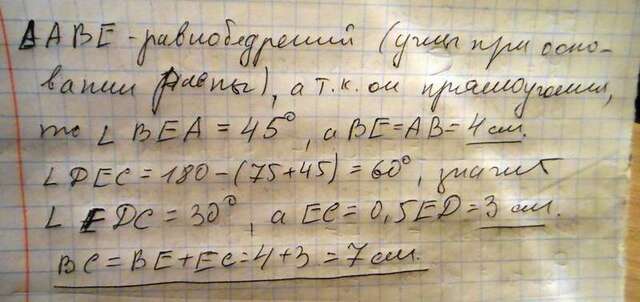 ΔABE - равнобедрений (углы при осно-
вании равны), а т.к. он прямоуголен,
то ∠ BEA = 45°, а BE=AB=4 см.
∠ DEC = 180-(75+45)=60°, значит
∠ EDC = 30°, а EC = 0,5ED=3 см.
BC = BE+EC=4+3=7 см.